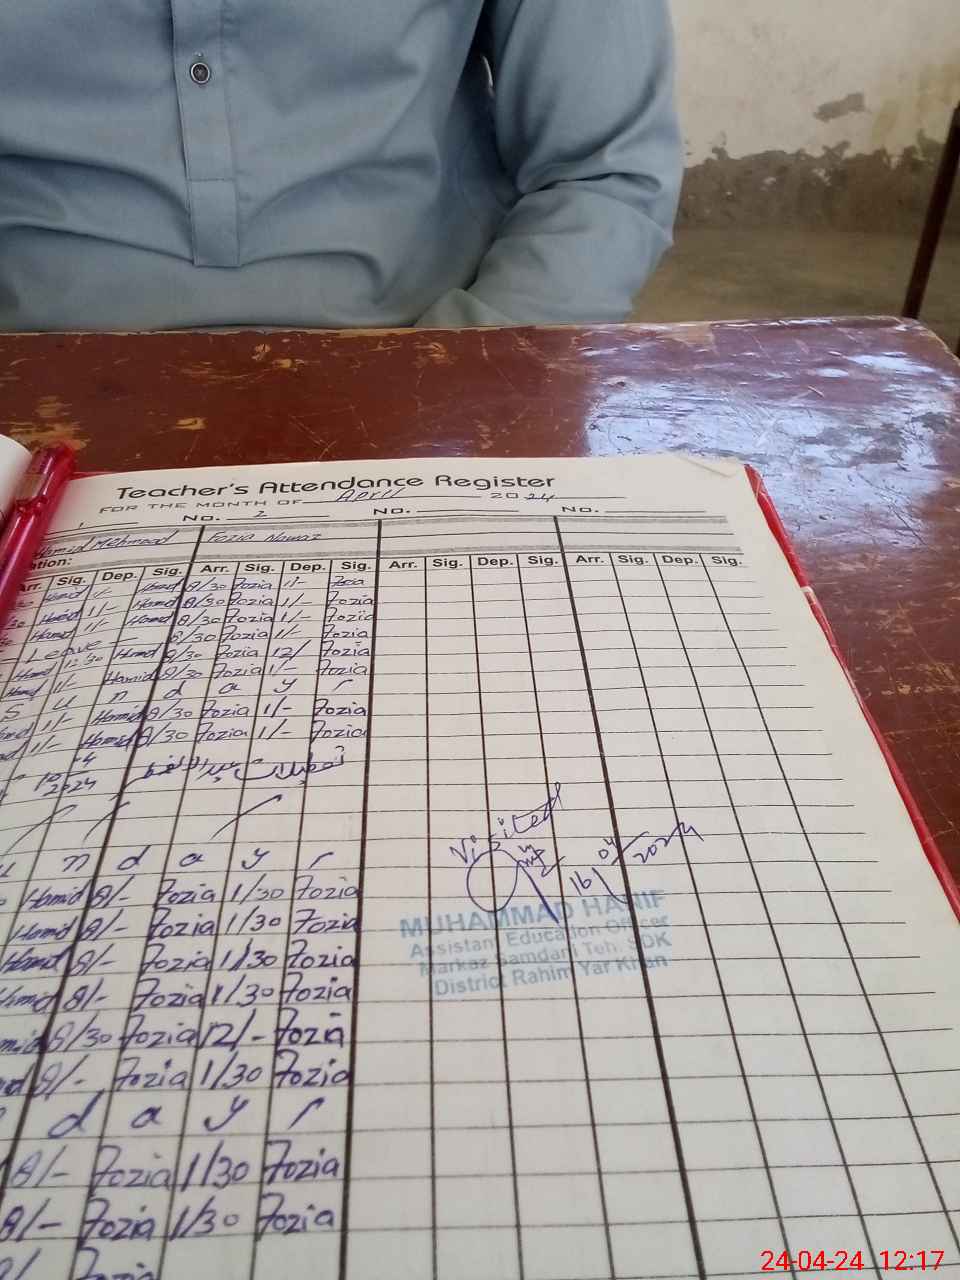 Teacher's Attendance Register
FOR THE MONTH OF April 2024
1 No. 2 No. No.
Hamid Mehmood Fozia Nawaz
ation:
Arr. Sig. Dep. Sig. Arr. Sig. Dep. Sig. Arr. Sig. Dep. Sig. Arr. Sig. Dep. Sig.
Hamid 1/- Hamid 8/30 Fozia 1/- Fozia
Hamid 1/- Hamid 8/30 Fozia 1/- Fozia
Hamid 1/- Hamid 8/30 Fozia 1/- Fozia
Leave 8/30 Fozia 1/- Fozia
Hamid 12/30 Hamid 8/30 Fozia 12/ Fozia
Hamid 1/- Hamid 8/30 Fozia 1/- Fozia
S u n d a y r
1/- Hamid 8/30 Fozia 1/- Fozia
1/- Hamid 8/30 Fozia 1/- Fozia
10-4 2024 تعطیلات عید الفطر
Visited
16/04/2024
u n d a y r
Hamid 8/- Fozia 1/30 Fozia
Hamid 8/- Fozia 1/30 Fozia
Hamid 8/- Fozia 1/30 Fozia
Hamid 8/- Fozia 1/30 Fozia
8/30 Fozia 12/- Fozia
8/- Fozia 1/30 Fozia
d a y r
8/- Fozia 1/30 Fozia
8/- Fozia 1/30 Fozia
8/ Fozia
MUHAMMAD HANIF
Assistant Education Officer
Markaz Samdani Teh. SDK
District Rahim Yar Khan
24-04-24 12:17